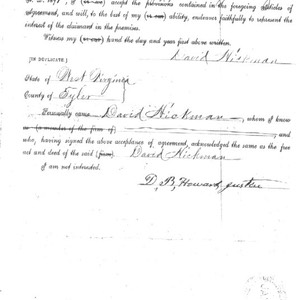 accept the provisions contained in the foregoing articles of
agreement, and will, to the best of my (or our) ability, endeavor faithfully to represent the
interest of the claimant in the premises.
Witness my (or our) hand the day and year first above written.
David Hickman
[IN DUPLICATE.]
State of West Virginia
County of Tyler
Personally came David Hickman, whom I know
(a member of the firm of) and
who, having signed the above acceptance of agreement, acknowledged the same as the free
act and deed of the said David Hickman
I am not interested.
D. B. Howard, Justice